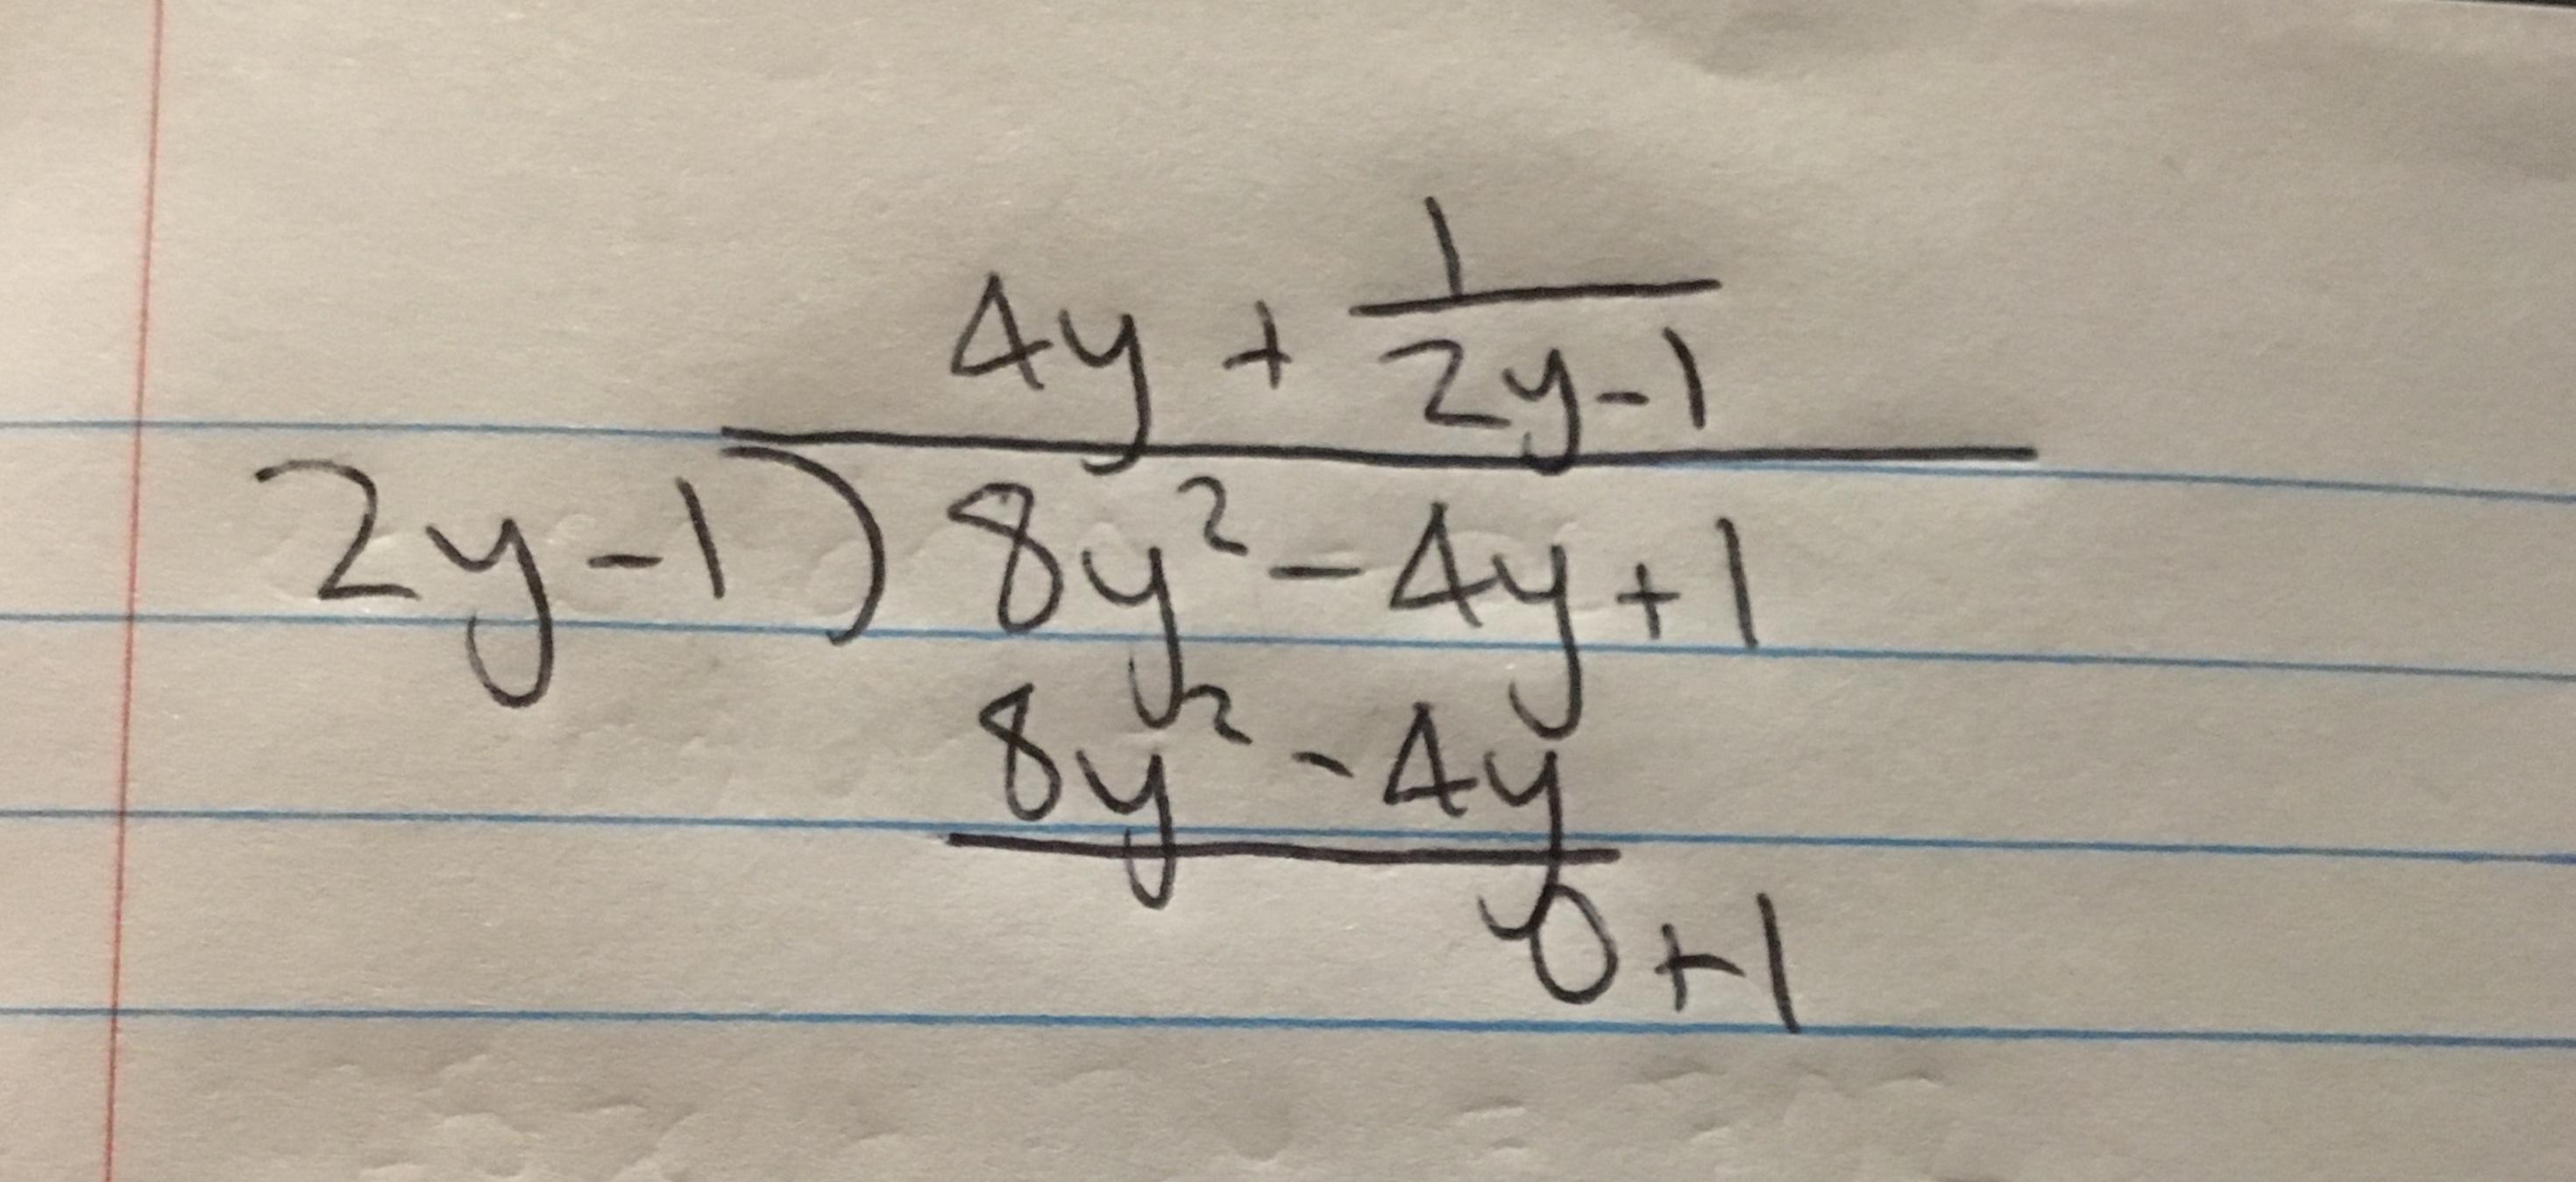 4y + 1/(2y-1)
2y-1) 8y² - 4y + 1
8y² - 4y
0 + 1